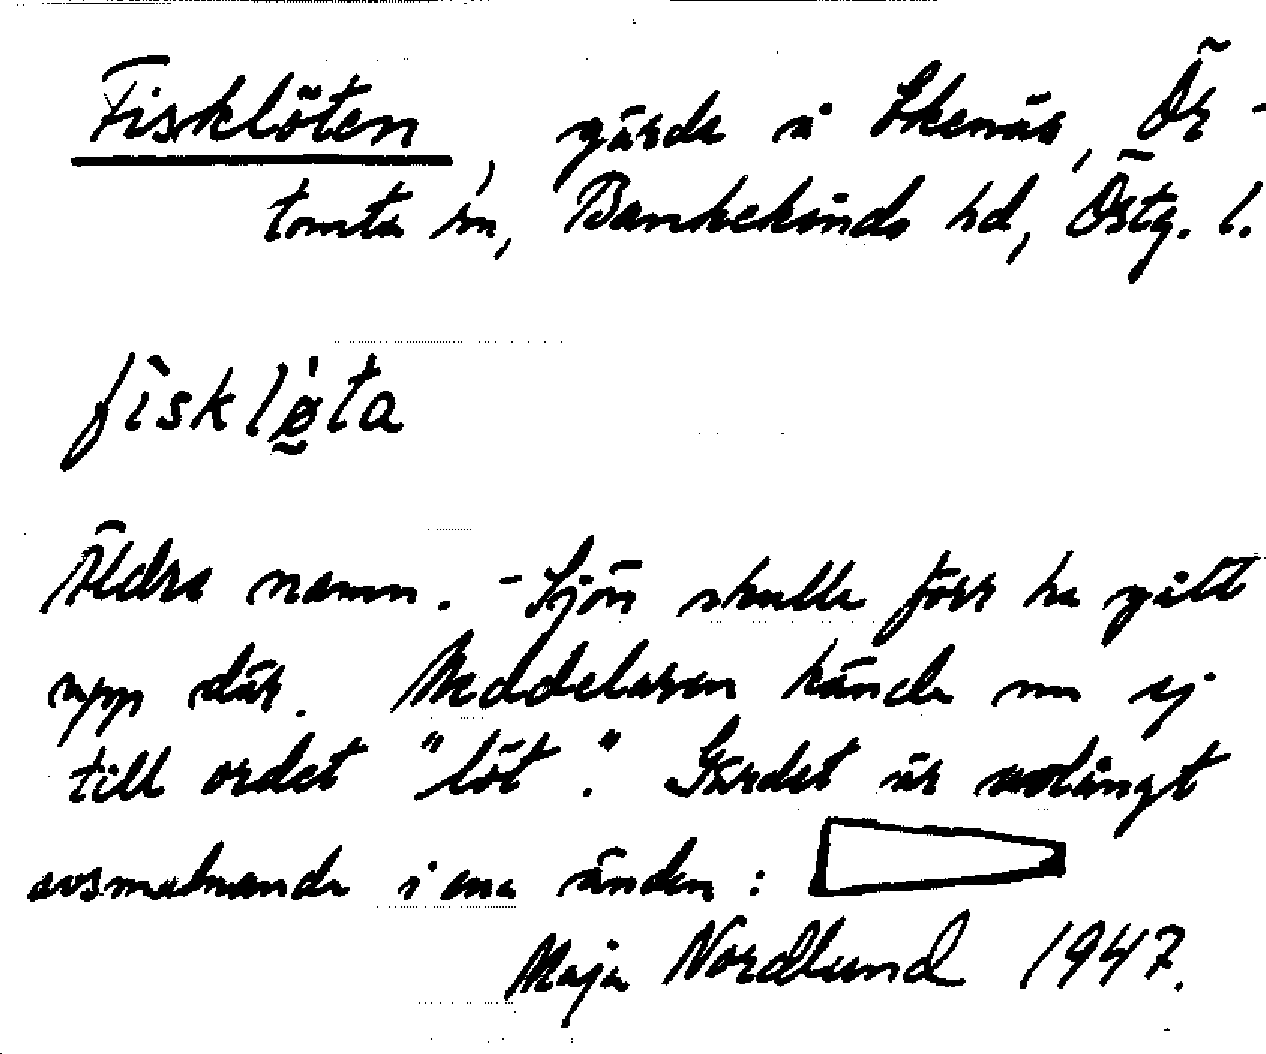 Fisklöten, gärde å Skenäs, Ör-
tomta sn, Bankekinds hd, Östg. l.
fìsklø̰̍ta
Äldre namn. - Sjön skulle förr ha gått
upp där. Meddelaren kände nu ej
till ordet "löt". Gärdet är avlångt
avsmalnande i ena änden:
Maja Nordlund 1947.